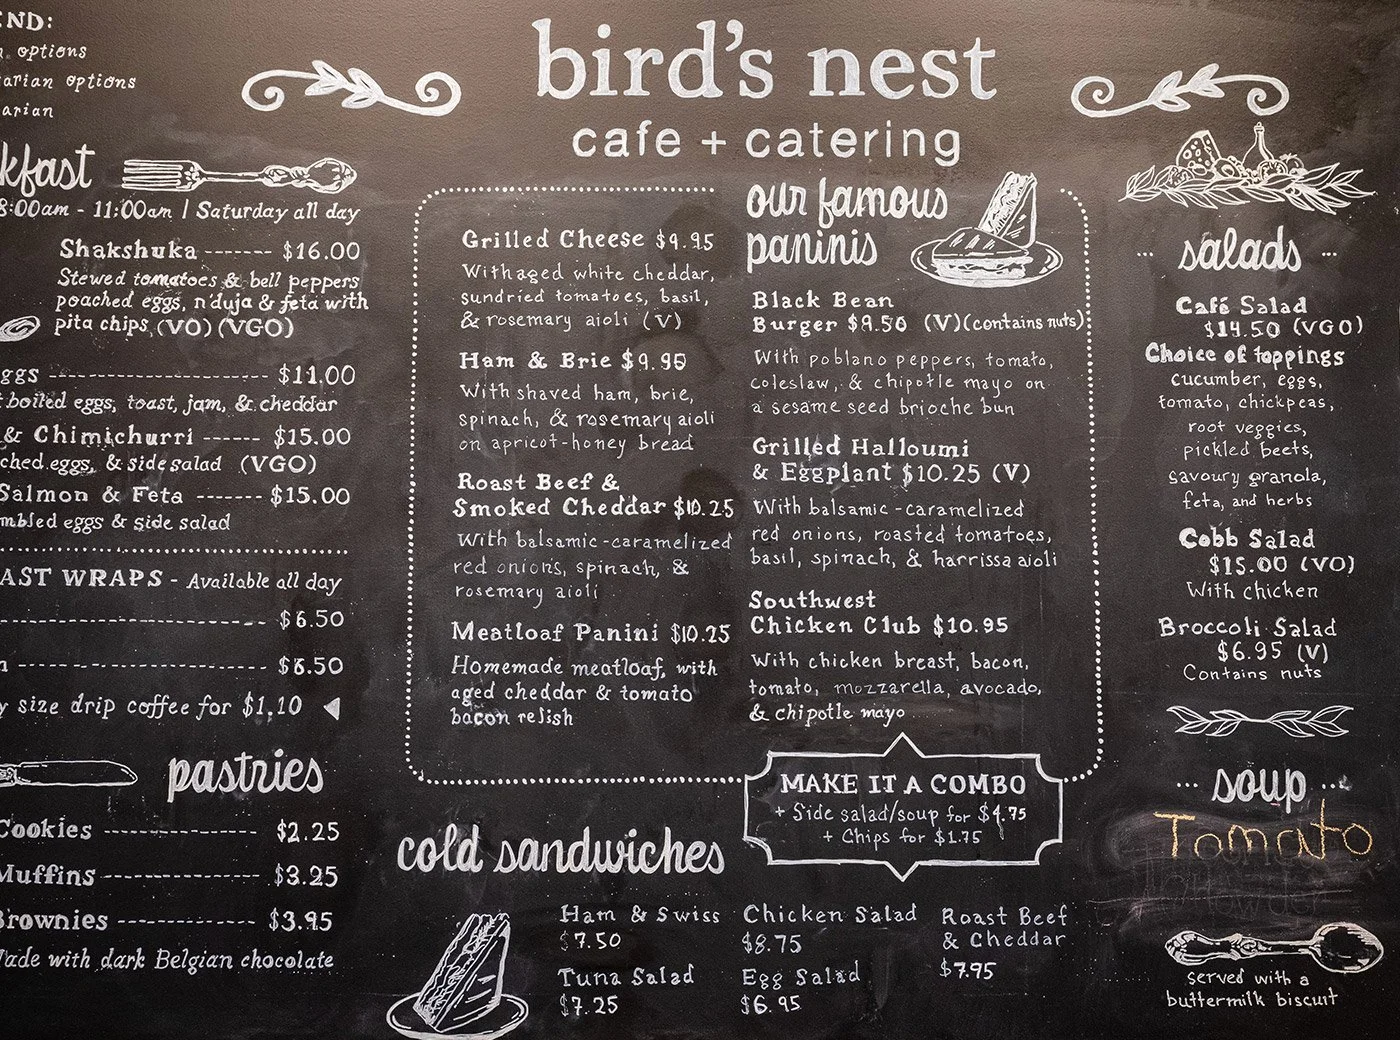 bird's nest
cafe + catering
END:
options
arian options
arian
kfast
8:00am - 11:00am | Saturday all day
Shakshuka ------- $16.00
Stewed tomatoes & bell peppers
poached eggs, n'duja & feta with
pita chips, (VO) (VGO)
ggs ---------------------- $11.00
boiled eggs, toast, jam, & cheddar
& Chimichurri ------ $15.00
ched eggs, & side salad (VGO)
Salmon & Feta ------- $15.00
mbled eggs & side salad
AST WRAPS - Available all day
$6.50
$6.50
y size drip coffee for $1.10
pastries
Cookies ------------------ $2.25
Muffins ------------------ $3.25
Brownies ---------------- $3.95
Made with dark Belgian chocolate
our famous
paninis
Grilled Cheese $9.95
With aged white cheddar,
sundried tomatoes, basil,
& rosemary aioli (V)
Ham & Brie $9.95
With shaved ham, brie,
spinach, & rosemary aioli
on apricot-honey bread
Roast Beef &
Smoked Cheddar $10.25
With balsamic-caramelized
red onions, spinach, &
rosemary aioli
Meatloaf Panini $10.25
Homemade meatloaf, with
aged cheddar & tomato
bacon relish
Black Bean
Burger $9.50 (V)(contains nuts)
With poblano peppers, tomato,
coleslaw, & chipotle mayo on
a sesame seed brioche bun
Grilled Halloumi
& Eggplant $10.25 (V)
With balsamic-caramelized
red onions, roasted tomatoes,
basil, spinach, & harrissa aioli
Southwest
Chicken Club $10.95
With chicken breast, bacon,
tomato, mozzarella, avocado,
& chipotle mayo
MAKE IT A COMBO
+ Side salad/soup for $4.75
+ Chips for $1.75
cold sandwiches
Ham & Swiss
$7.50
Tuna Salad
$7.25
Chicken Salad
$8.75
Egg Salad
$6.95
Roast Beef
& Cheddar
$7.95
... salads ...
Café Salad
$14.50 (VGO)
Choice of toppings
cucumber, eggs,
tomato, chickpeas,
root veggies,
pickled beets,
savoury granola,
feta, and herbs
Cobb Salad
$15.00 (VO)
With chicken
Broccoli Salad
$6.95 (V)
Contains nuts
... soup ...
Tomato
served with a
buttermilk biscuit